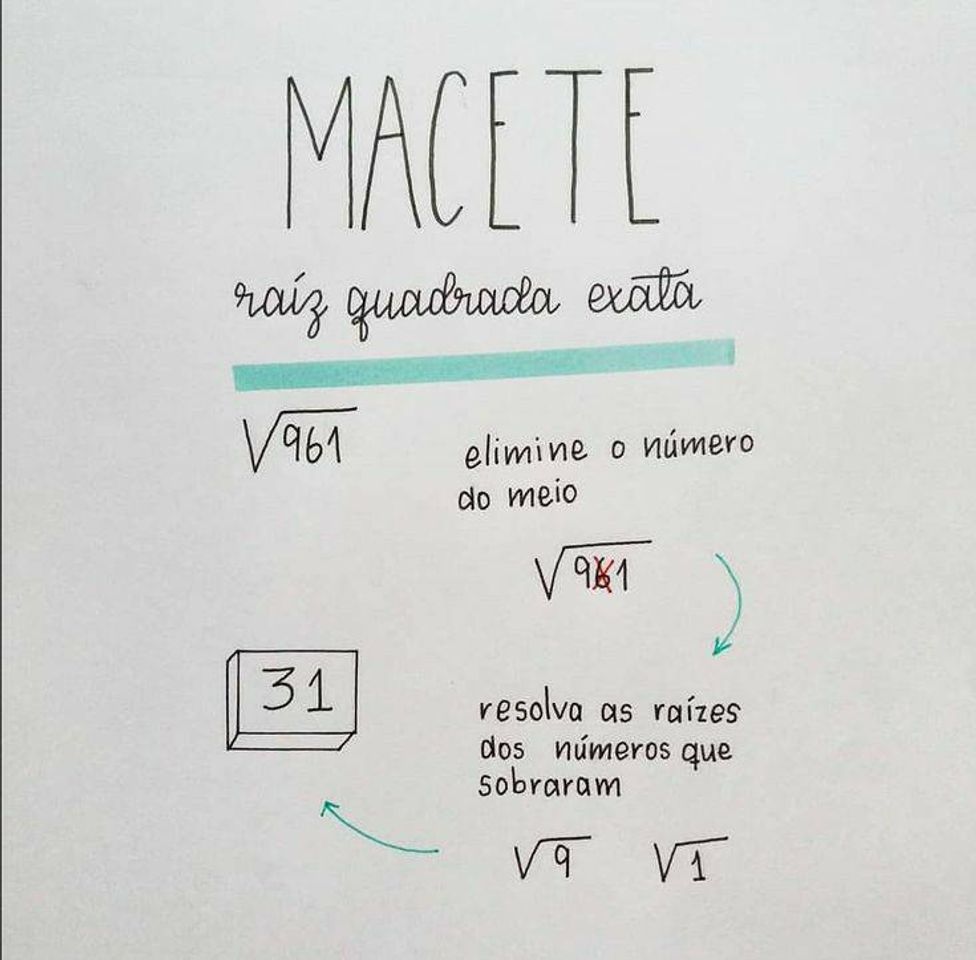 MACETE
raíz quadrada exata
√961
elimine o número
do meio
√961
31
resolva as raízes
dos números que
sobraram
√9 √1